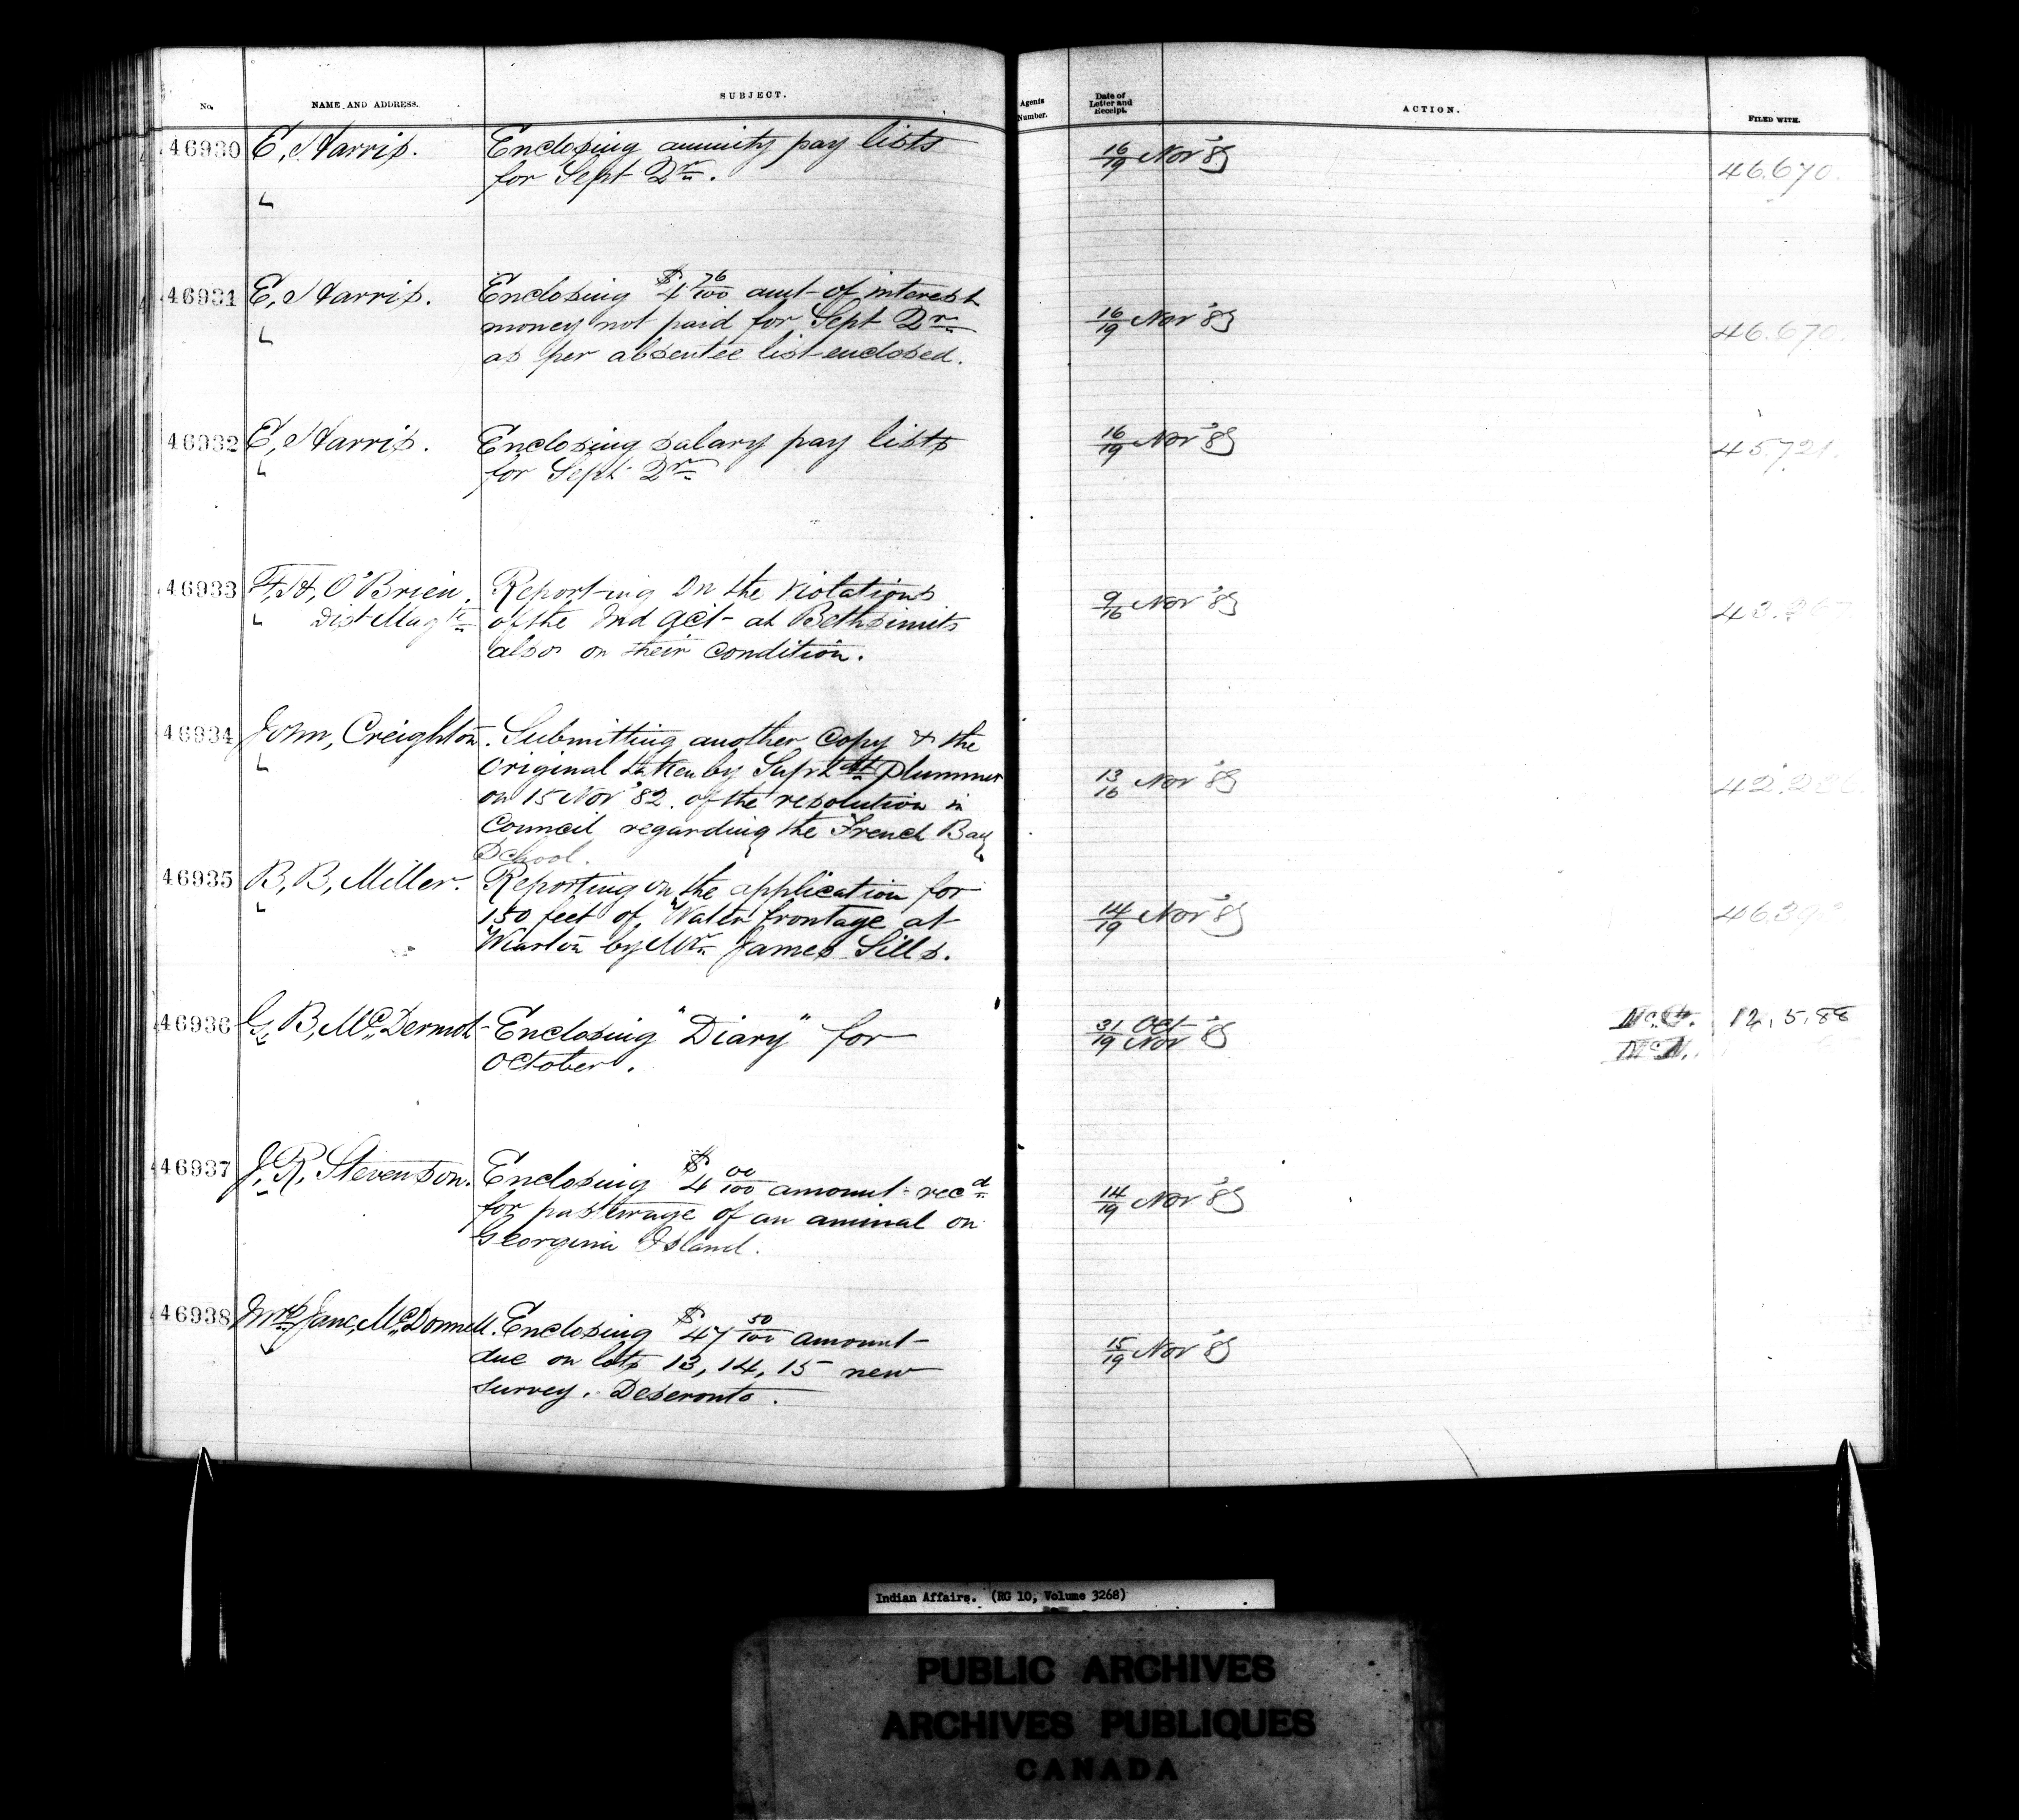 No. NAME AND ADDRESS. SUBJECT. Agents Number. Date of Letter and Receipt. ACTION. FILED WITH.
46930 E, Harris. Enclosing annuity pay lists 16/19 Nov '85 46.670.
for Sept Qr.
46931 E, Harris. Enclosing $4 76/100 amt of interest 16/19 Nov '85 46.670.
money not paid for Sept Qr
as per absentee list enclosed.
46932 E, Harris. Enclosing salary pay lists 16/19 Nov '85 45.721.
for Sept Qr
46933 F, H, O'Brien, Reporting on the violations 9/16 Nov '85
Dist Magte of the Ind Act at Bethsimits
also on their condition.
46934 John, Creighton. Submitting another copy & the 13/16 Nov '85
Original taken by Supt Plummer
on 15 Nov '82. of the resolution in
Council regarding the French Bay
School.
46935 B, B, Miller. Reporting on the application for 14/19 Nov '85
150 feet of Water frontage at
Wiarton by Mr James Sills.
46936 G, B, McDermot Enclosing "Diary" for 31 Oct/19 Nov '85 12,5,88
October.
46937 J, R, Stevenson. Enclosing $4 00/100 amount recd 14/19 Nov '85
for pasturage of an animal on
Georgina Island.
46938 Mrs Jane, McDonnell. Enclosing $47 50/100 amount 15/19 Nov '85
due on lots 13, 14, 15 new
survey. Deseronto.
Indian Affairs. (RG 10, Volume 3268)
PUBLIC ARCHIVES
ARCHIVES PUBLIQUES
CANADA